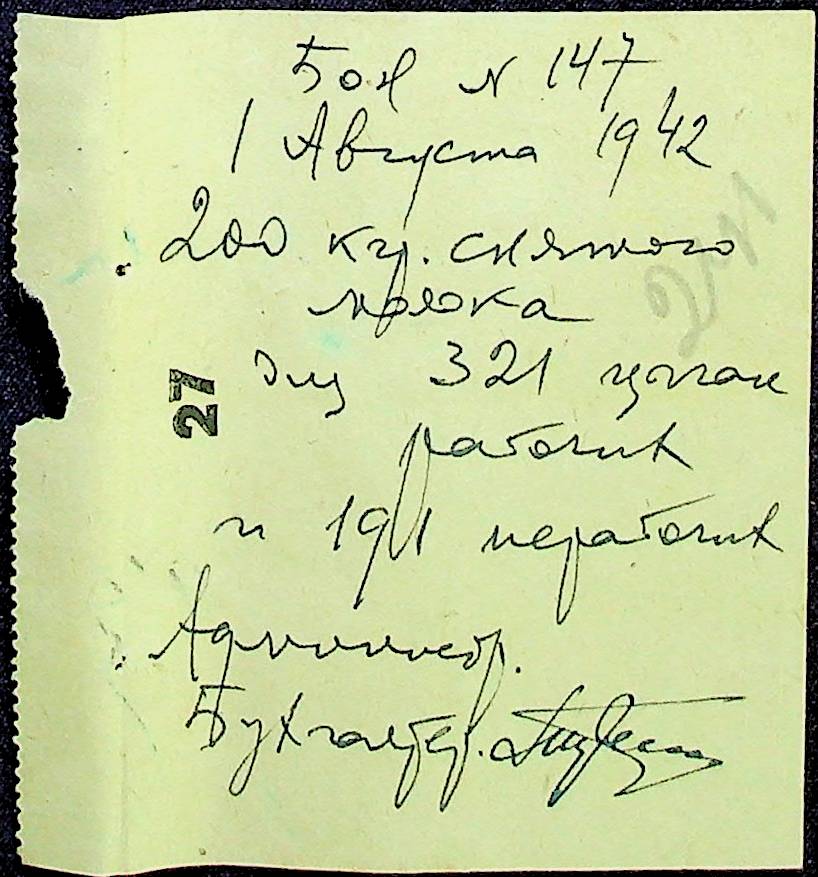 Бон № 147
1 Августа 1942
200 кгр. снятого
молока
Для 321 цыган
рабочих
и 191 нерабочих
27
Админстр.
Бухгалтер.